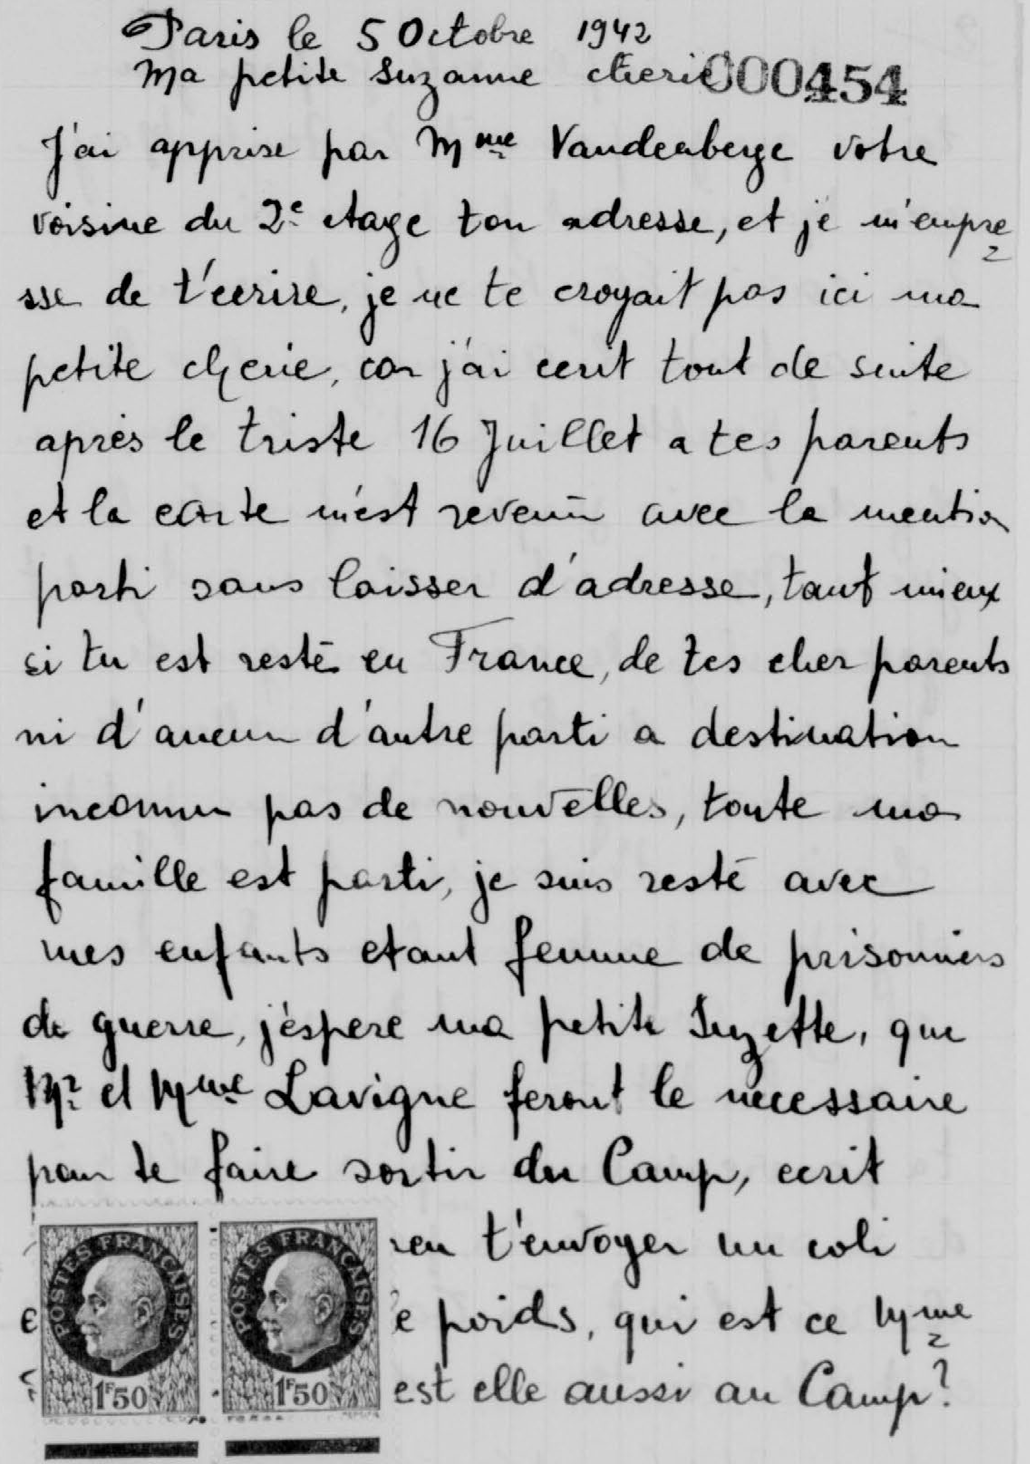 Paris le 5 Octobre 1942
Ma petite Suzanne cherie 000454
J'ai apprise par Mme Vandenberge votre
voisine du 2e etage ton adresse, et je m'empre
sse de t'ecrire, je ne te croyait pas ici ma
petite cherie, car j'ai ecrit tout de suite
après le triste 16 Juillet a tes parents
et la carte m'est revenu avec la mention
parti sans laisser d'adresse, tant mieux
si tu est resté en France, de tes cher parents
ni d'aucun d'autre parti a destination
inconnu pas de nouvelles, toute ma
famille est parti, je suis resté avec
mes enfants etant femme de prisonniers
de guerre, j'éspere ma petite Suzette, que
Mr et Mme Lavigne feront le necessaire
pour te faire sortir du Camp, ecrit
t'envoyer un coli
poids, qui est ce Mme
est elle aussi au Camp?
POSTES FRANÇAISES
1F50
POSTES FRANÇAISES
1F50